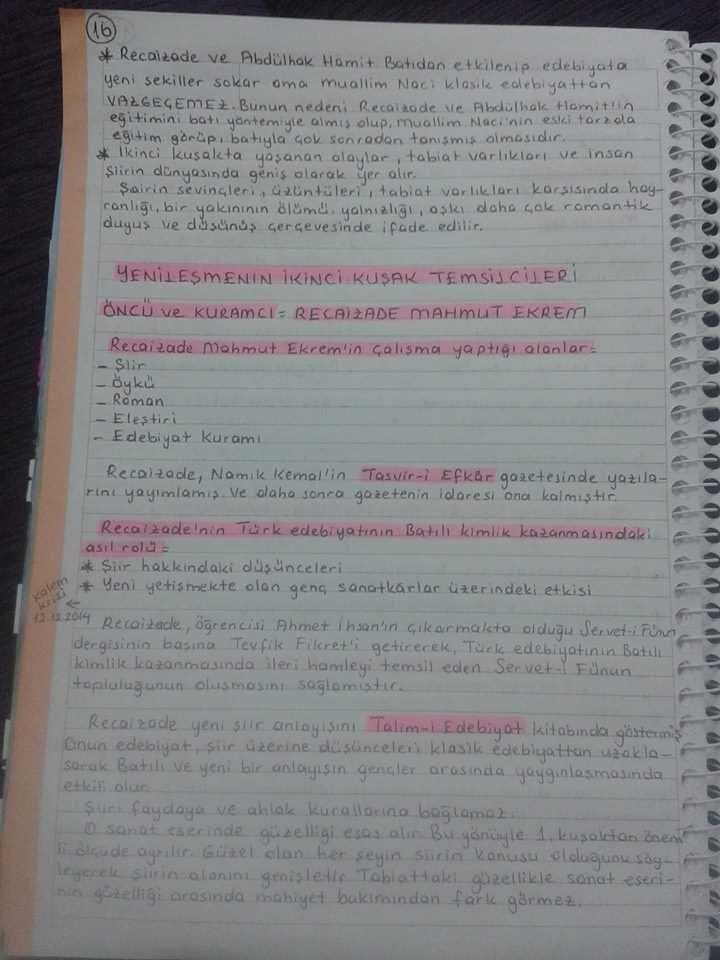 16
* Recaizade ve Abdülhak Hamit Batıdan etkilenip edebiyata
yeni şekiller sokar ama muallim Naci klasik edebiyattan
VAZGEÇEMEZ. Bunun nedeni Recaizade ve Abdülhak Hamit'in
eğitimini batı yöntemiyle almış olup, muallim Naci'nin eski tarzda
eğitim görüp, batıyla çok sonradan tanışmış olmasıdır.
* İkinci kuşakta yaşanan olaylar, tabiat varlıkları ve insan
şiirin dünyasında geniş olarak yer alır.
Şairin sevinçleri, üzüntüleri, tabiat varlıkları karşısında hay-
ranlığı, bir yakınının ölümü, yalnızlığı, aşkı daha çok romantik
duyuş ve düşünüş çerçevesinde ifade edilir.
YENİLEŞMENİN İKİNCİ KUŞAK TEMSİLCİLERİ
ÖNCÜ ve KURAMCI = RECAİZADE MAHMUT EKREM
Recaizade Mahmut Ekrem'in çalışma yaptığı alanlar =
- Şiir
- Öykü
- Roman
- Eleştiri
- Edebiyat Kuramı
Recaizade, Namık Kemal'in Tasvir-i Efkâr gazetesinde yazıla-
rını yayımlamış. Ve daha sonra gazetenin idaresi ona kalmıştır.
Recaizade'nin Türk edebiyatının Batılı kimlik kazanmasındaki
asıl rolü =
* Şiir hakkındaki düşünceleri
* Yeni yetişmekte olan genç sanatkârlar üzerindeki etkisi
Kalem
krizi
12.12.2014
Recaizade, öğrencisi Ahmet İhsan'ın çıkarmakta olduğu Servet-i Fünun
dergisinin başına Tevfik Fikret'i getirerek, Türk edebiyatının Batılı
kimlik kazanmasında ileri hamleyi temsil eden Servet-i Fünun
topluluğunun oluşmasını sağlamıştır.
Recaizade yeni şiir anlayışını Talim-i Edebiyat kitabında göstermiş
Onun edebiyat, şiir üzerine düşünceleri klasik edebiyattan uzakla-
şarak Batılı ve yeni bir anlayışın gençler arasında yaygınlaşmasında
etkili olur.
Şiiri faydaya ve ahlak kurallarına bağlamaz.
O sanat eserinde güzelliği esas alır. Bu yönüyle 1. kuşaktan önem
li ölçüde ayrılır. Güzel olan her şeyin şiirin konusu olduğunu söy-
leyerek şiirin alanını genişletir. Tabiattaki güzellikle sanat eseri-
nin güzelliği arasında mahiyet bakımından fark görmez.